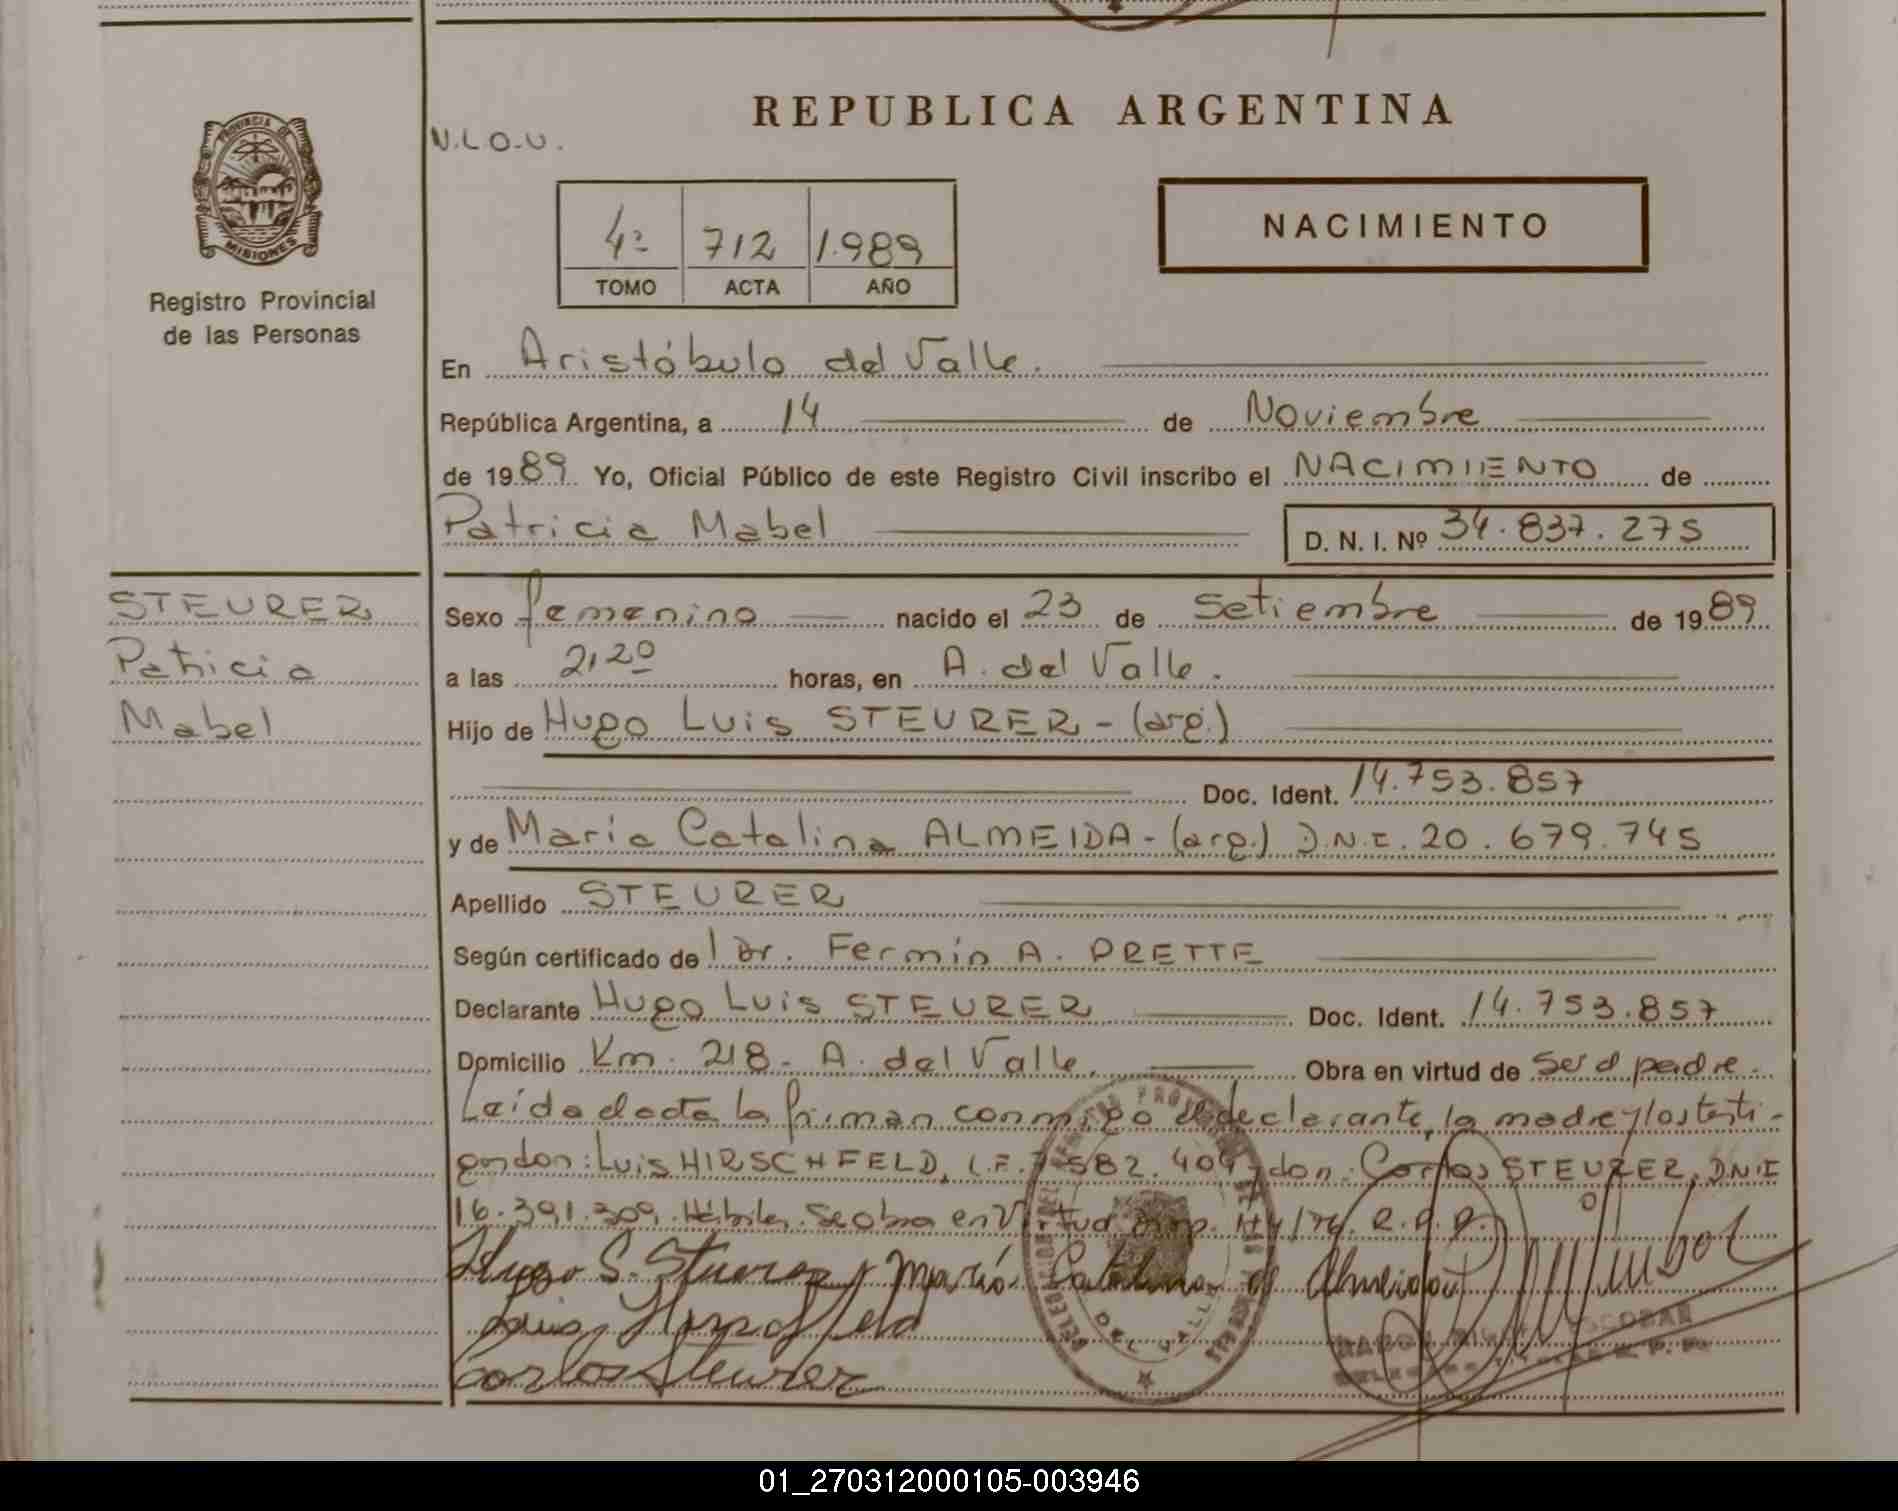 PROVINCIA DE
MISIONES
Registro Provincial
de las Personas
STEURER
Patricia
Mabel
REPUBLICA ARGENTINA
N.L.O.U.
4º 712 1.989
TOMO ACTA AÑO
NACIMIENTO
En Aristóbulo del Valle.
República Argentina, a 14 de Noviembre
de 1989. Yo, Oficial Público de este Registro Civil inscribo el NACIMIENTO de
Patricia Mabel D. N. I. Nº 34.837.275
Sexo femenino nacido el 23 de Setiembre de 1989
a las 21,20 horas, en A. del Valle.
Hijo de Hugo Luis STEURER - (arg.)
Doc. Ident. 14.753.857
y de María Catalina ALMEIDA - (arg.) D.N.I. 20.679.745
Apellido STEURER
Según certificado del Dr. Fermín A. PRETTE
Declarante Hugo Luis STEURER Doc. Ident. 14.753.857
Domicilio Km. 218 - A. del Valle. Obra en virtud de ser el padre.
Leída el acta la firman conmigo el declarante, la madre y los testi-
gos don: Luis HIRSCHFELD, L.E. 7.582.404 y don: Carlos STEURER, D.N.I
16.391.309. Hábiles. Se obra en Virtud R.P.P.
Hugo L. Steurer María Catalina de Almeida
Luis Hirschfeld
Carlos Steurer
DEL VALLE
ESCOBAR
01_270312000105-003946